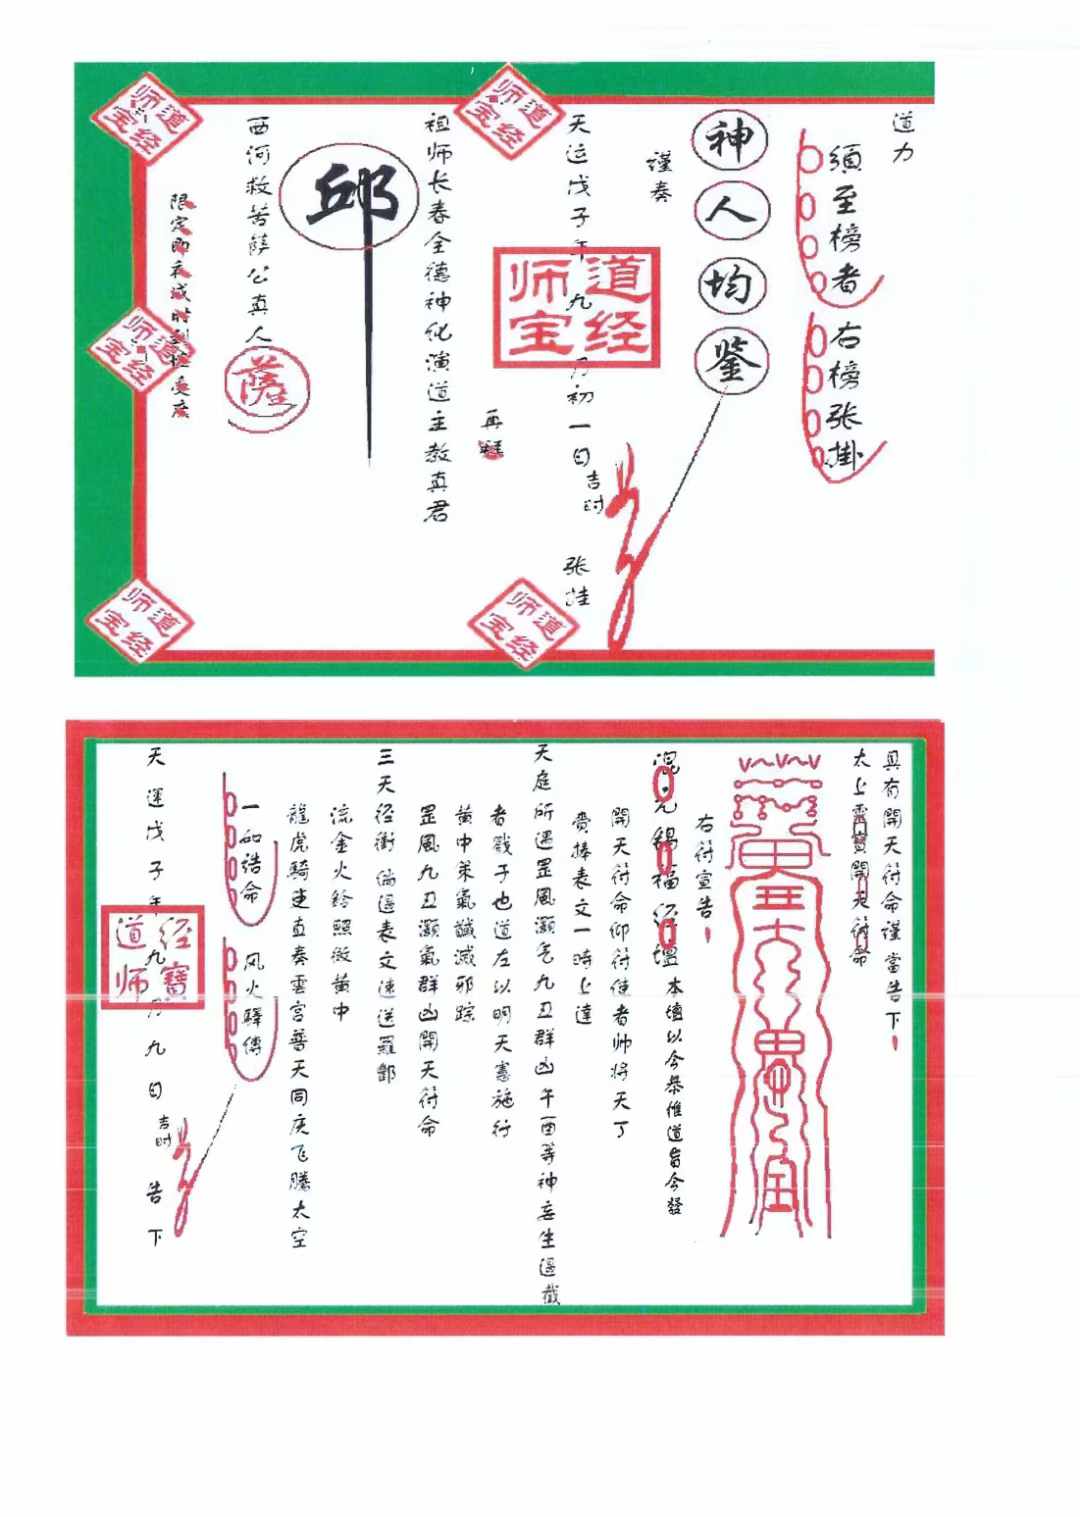 道力
須至榜者 右榜张掛
神人均鉴
谨奏
天运戊子年九月初一日吉时 张挂
再
祖师长春全德神化演道主教真君
邱
西河救苦薩公真人
薩
道经师宝
道经师宝
道经师宝
道经师宝
道经师宝
道经师宝
具有開天符命谨當告下
太上靈寶開天符命
右符宣告
混元錫福经壇 本壇以今恭惟道旨今發
開天符命仰符使者帅将天丁
賫捧表文一時上達
天庭所遇罡風灝炁九丑群凶午酉等神妄生遏截
者戮子也道左以明天憲施行
黄中策氣馘滅邪踪
罡風九丑灝氣群凶開天符命
三天径衝 倘遏表文速送羅酆
流金火鈴照徹黄中
龍虎騎吏直奏雲宫普天同庆飞騰太空
一如誥命 风火驛傳
天運戊子年九月九日吉时 告下
道经师寶